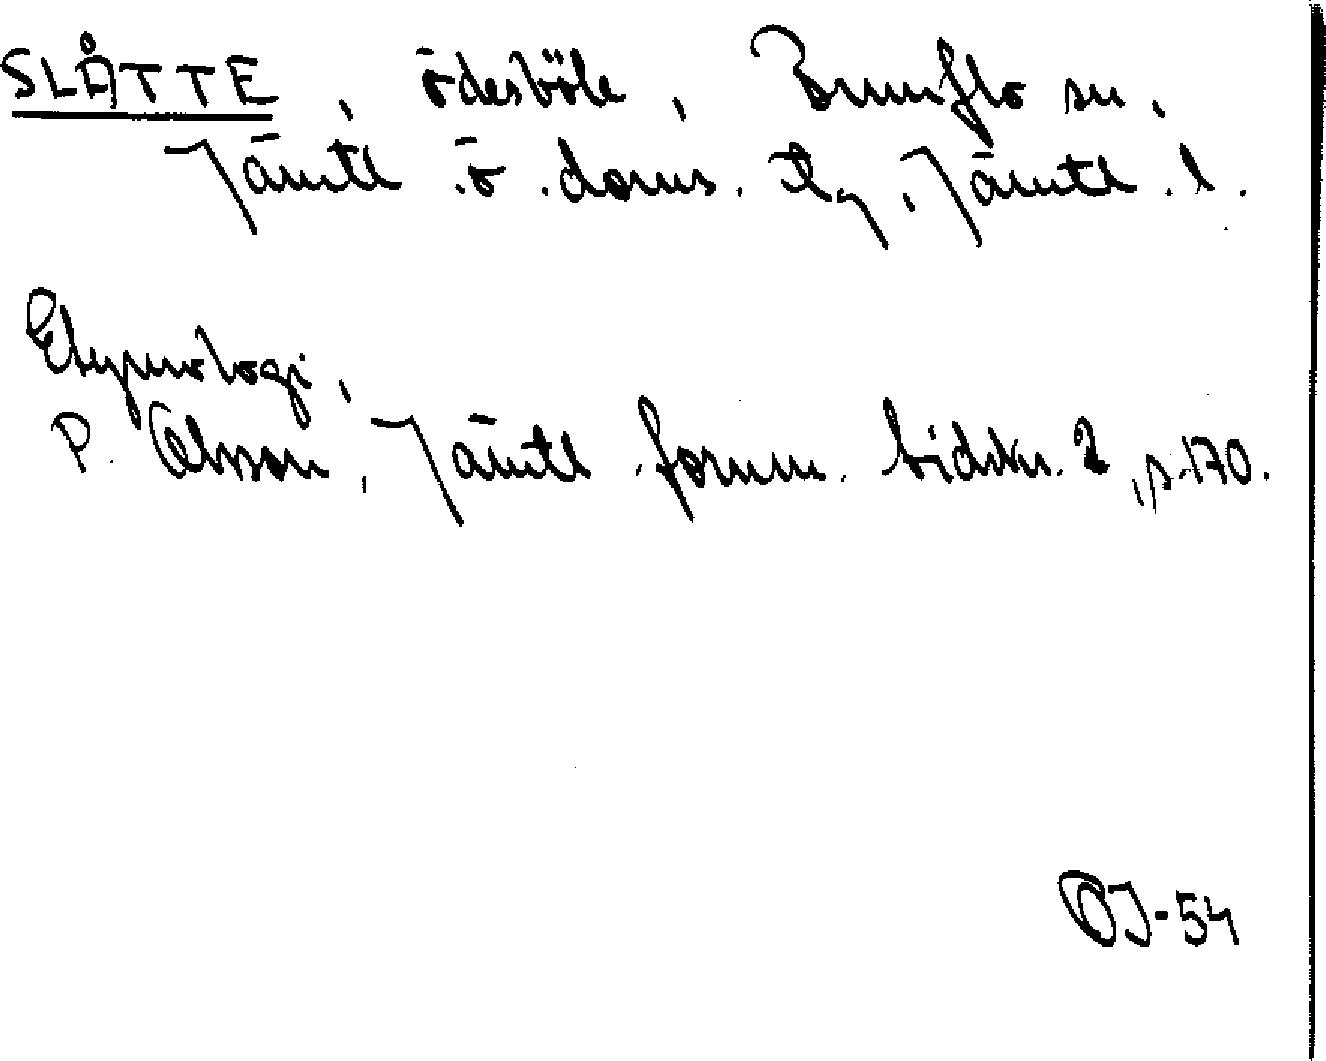 SLÅTTE, ödesböle, Brunflo sn,
Jämtl. ö. doms. tlg, Jämtl. l.
Etymologi,
P. Olsson, Jämtl. fornm. tidskr. 2, s. 170.
OJ-54